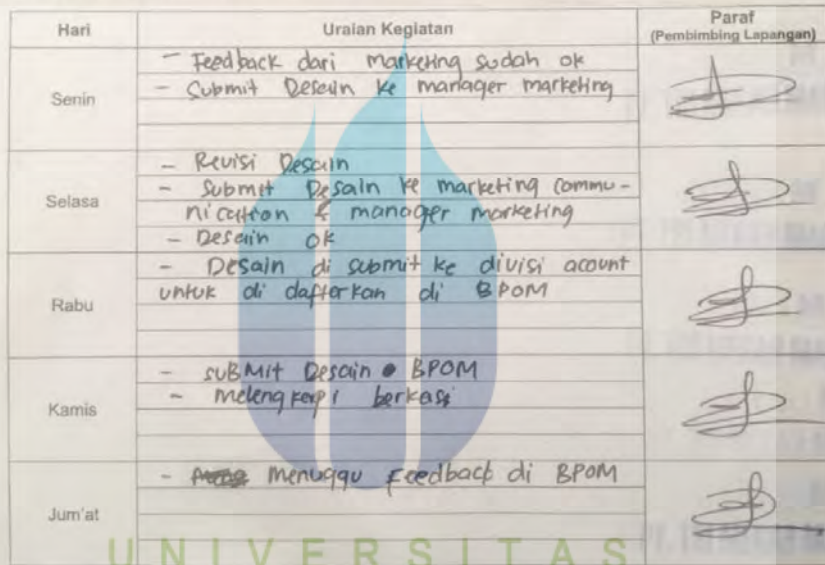 Hari Uraian Kegiatan Paraf
(Pembimbing Lapangan)
Senin
- Feedback dari marketing sudah ok
- Submit Desain ke manager marketing
Selasa
- Revisi Desain
- Submit Desain ke marketing commu-
nication & manager marketing
- Desain ok
Rabu
- Desain di submit ke divisi acount
untuk di daftarkan di BPOM
Kamis
- SUBMit Desain BPOM
- melengkapi berkas
Jum'at
- menuggu Feedback di BPOM
UNIVERSITAS